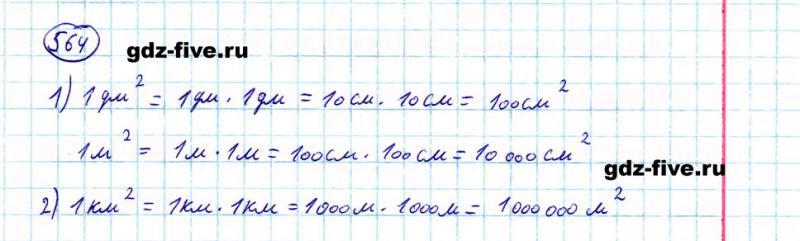 564
gdz-five.ru
1) 1 дм² = 1 дм · 1 дм = 10 см · 10 см = 100 см²
1 м² = 1 м · 1 м = 100 см · 100 см = 10 000 см²
gdz-five.ru
2) 1 км² = 1 км · 1 км = 1000 м · 1000 м = 1000 000 м²